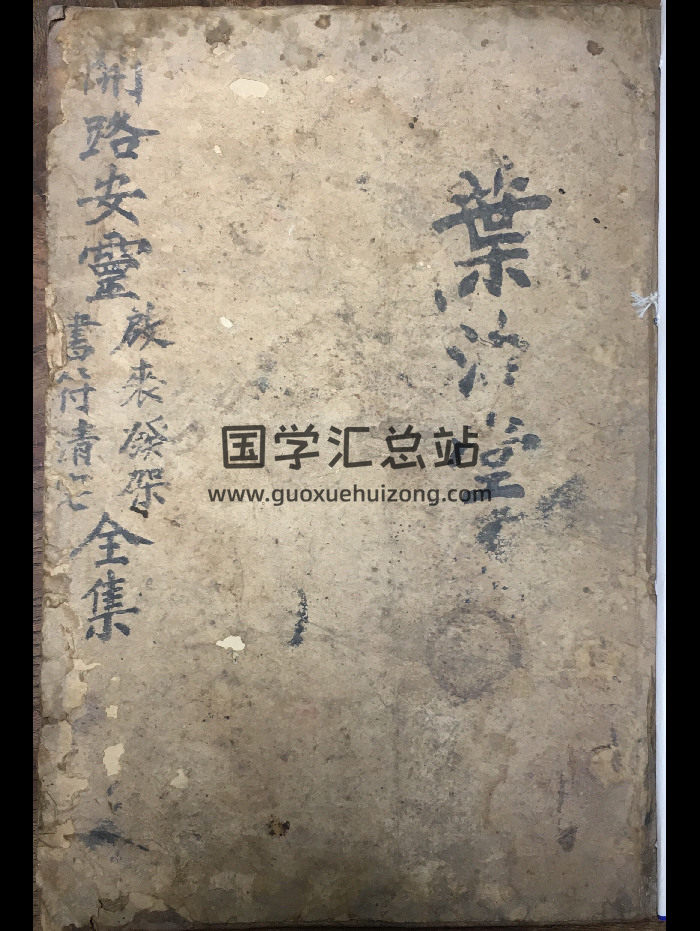 葉治堂
開路安靈
啟來
書符清
全集
国学汇总站
www.guoxuehuizong.com